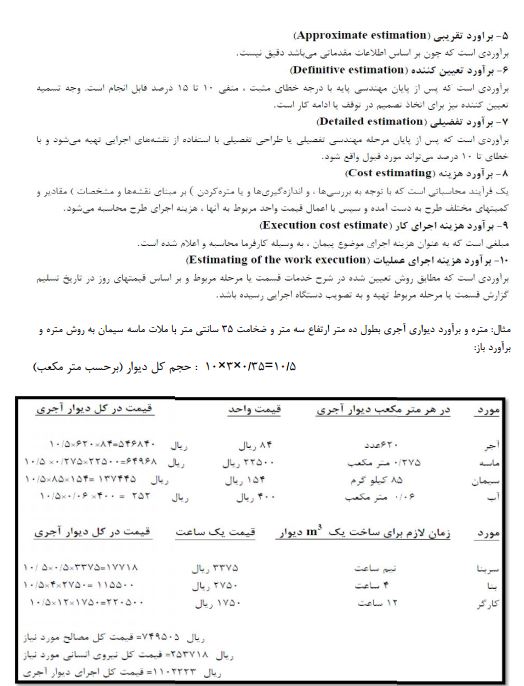 ۵- برآورد تقریبی (Approximate estimation)
برآوردی است که چون بر اساس اطلاعات مقدماتی می‌باشد دقیق نیست.
۶- برآورد تعیین کننده (Definitive estimation)
برآوردی است که پس از پایان مهندسی پایه با درجه خطای مثبت ، منفی ۱۰ تا ۱۵ درصد قابل انجام است. وجه تسمیه
تعیین کننده نیز برای اتخاذ تصمیم در توقف یا ادامه کار است.
۷- برآورد تفضیلی (Detailed estimation)
برآوردی است که پس از پایان مرحله مهندسی تفصیلی یا طراحی تفصیلی با استفاده از نقشه‌های اجرایی تهیه می‌شود و با
خطای تا ۱۰ درصد می‌تواند مورد قبول واقع شود.
۸- برآورد هزینه (Cost estimating)
یک فرآیند محاسباتی است که با توجه به بررسی‌ها ، و اندازه‌گیری‌ها و یا متره‌کردن ) بر مبنای نقشه‌ها و مشخصات ) مقادیر و
کمیتهای مختلف طرح به دست آمده و سپس با اعمال قیمت واحد مربوط به آنها ، هزینه اجرای طرح محاسبه می‌شود.
۹- برآورد هزینه اجرای کار (Execution cost estimate)
مبلغی است که به عنوان هزینه اجرای موضوع پیمان ، به وسیله کارفرما محاسبه و اعلام شده است.
۱۰- برآورد هزینه اجرای عملیات (Estimating of the work execution)
برآوردی است که مطابق روش تعیین شده در شرح خدمات قسمت یا مرحله مربوط و بر اساس قیمتهای روز در تاریخ تسلیم
گزارش قسمت یا مرحله مربوط تهیه و به تصویب دستگاه اجرایی رسیده باشد.
مثال: متره و برآورد دیواری آجری بطول ده متر ارتفاع سه متر و ضخامت ۳۵ سانتی متر با ملات ماسه سیمان به روش متره و
برآورد باز:
۱۰×۳×۰/۳۵=۱۰/۵ : حجم کل دیوار (برحسب متر مکعب)
مورد در هر متر مکعب دیوار آجری قیمت واحد قیمت در کل دیوار آجری
آجر ۶۲۰عدد ۸۴ ریال ۱۰/۵×۶۲۰×۸۴=۵۴۶۸۴۰ ریال
ماسه ۰/۲۷۵ متر مکعب ۲۲۵۰۰ ریال ۱۰/۵ ×۰/۲۷۵×۲۲۵۰۰=۶۴۹۶۸ ریال
سیمان ۸۵ کیلو گرم ۱۵۴ ریال ۱۰/۵×۸۵×۱۵۴= ۱۳۷۴۴۵ ریال
آب ۰/۰۶ متر مکعب ۴۰۰ ریال ۱۰/۵×۰/۰۶ ×۴۰۰ = ۲۵۲ ریال
مورد زمان لازم برای ساخت یک m³ دیوار قیمت یک ساعت قیمت در کل دیوار آجری
سربنا نیم ساعت ۳۳۷۵ ریال ۱۰/۵×۰/۵×۳۳۷۵=۱۷۷۱۸
بنا ۴ ساعت ۲۷۵۰ ریال ۱۰/۵×۴×۲۷۵۰= ۱۱۵۵۰۰
کارگر ۱۲ ساعت ۱۷۵۰ ریال ۱۰/۵×۱۲×۱۷۵۰=۲۲۰۵۰۰
ریال ۷۴۹۵۰۵= قیمت کل مصالح مورد نیاز
ریال ۲۵۳۷۱۸= قیمت کل نیروی انسانی مورد نیاز
ریال ۱۱۰۲۲۲۳= قیمت کل اجرای دیوار آجری